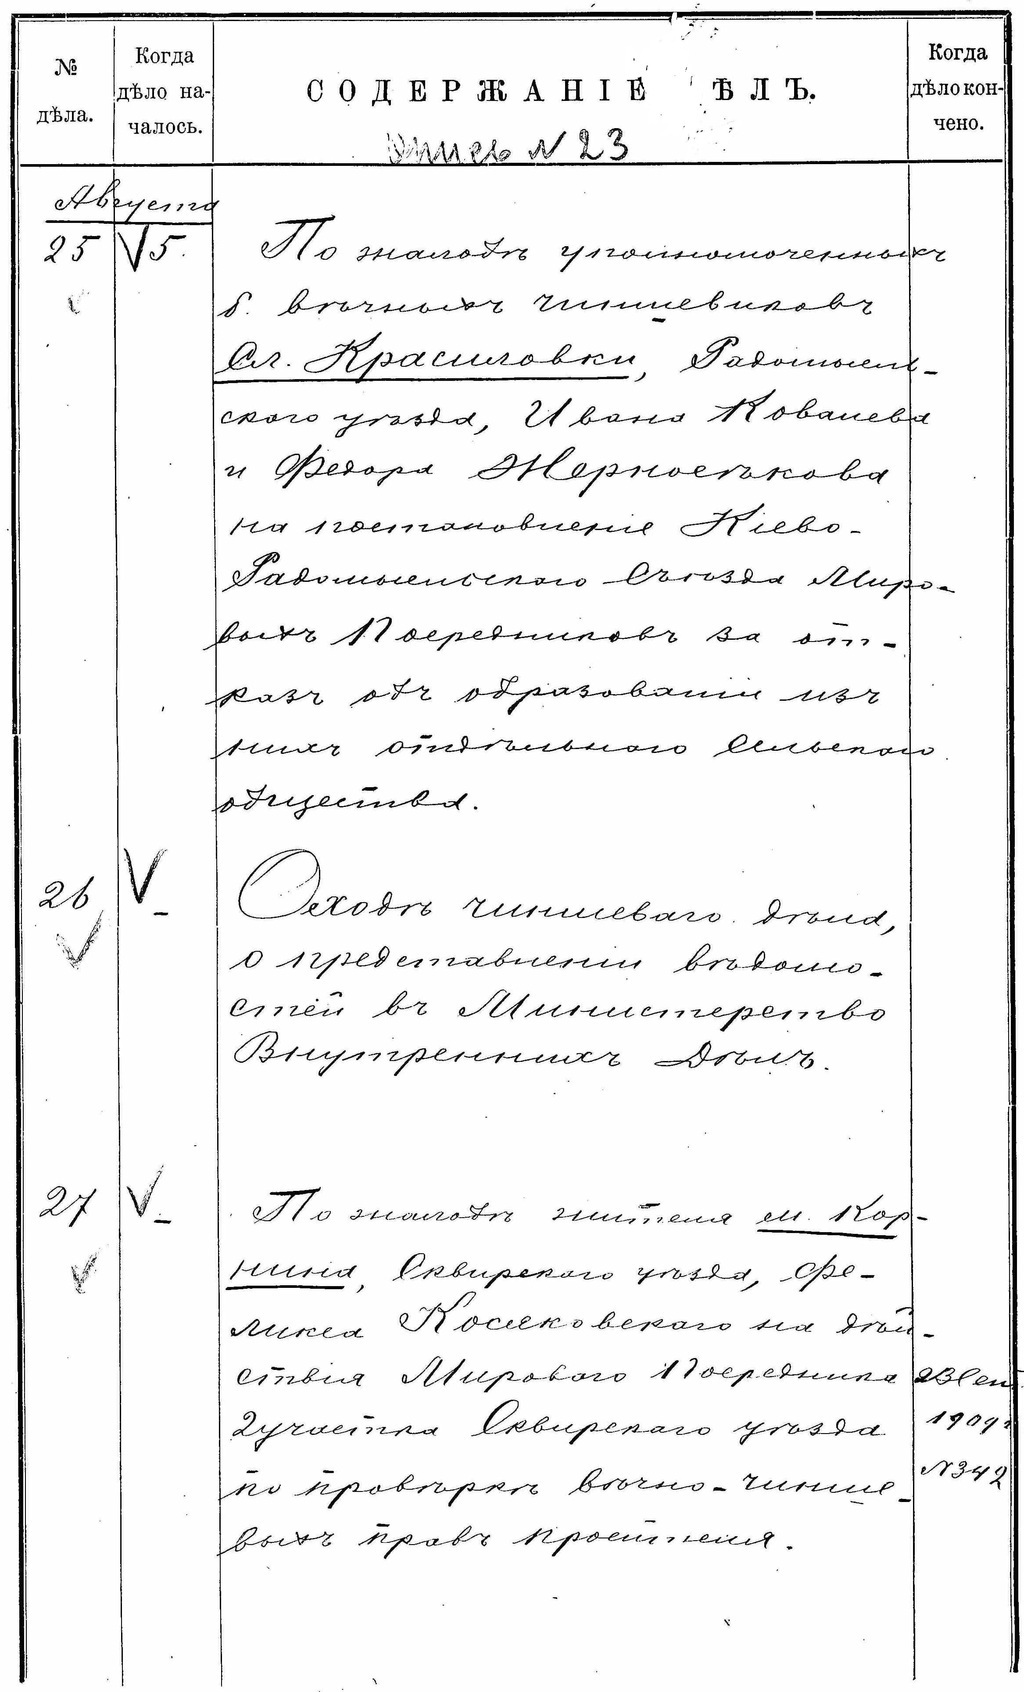 № дѣла.
Когда дѣло на-чалось.
СОДЕРЖАНІЕ ѢЛЪ.
Когда дѣло кон-чено.
Опись N 23
Августа
25 5. По жалобѣ уполномоченныхъ
б. вѣчныхъ чиншевиковъ
Сл. Красиловки, Радомысль-
скаго уѣзда, Ивана Ковалева
и Федора Жерносѣкова
на постановленіе Кіево-
Радомысльскаго Съѣзда Миро-
выхъ Посредниковъ за от-
казъ объ образованіи изъ
нихъ отдѣльнаго Сельскаго
общества.
26 – О ходѣ чиншеваго дѣла,
о представленіи вѣдомо-
стей въ Министерство
Внутреннихъ Дѣлъ.
27 – По жалобѣ жителя м. Кор-
нина, Сквирскаго уѣзда, Фе-
ликса Косаковскаго на дѣй-
ствія Мироваго Посредника
2 участка Сквирскаго уѣзда
по провѣркѣ вѣчно-чинше-
выхъ правъ просителя.
23 Сент
1909 г
N 342